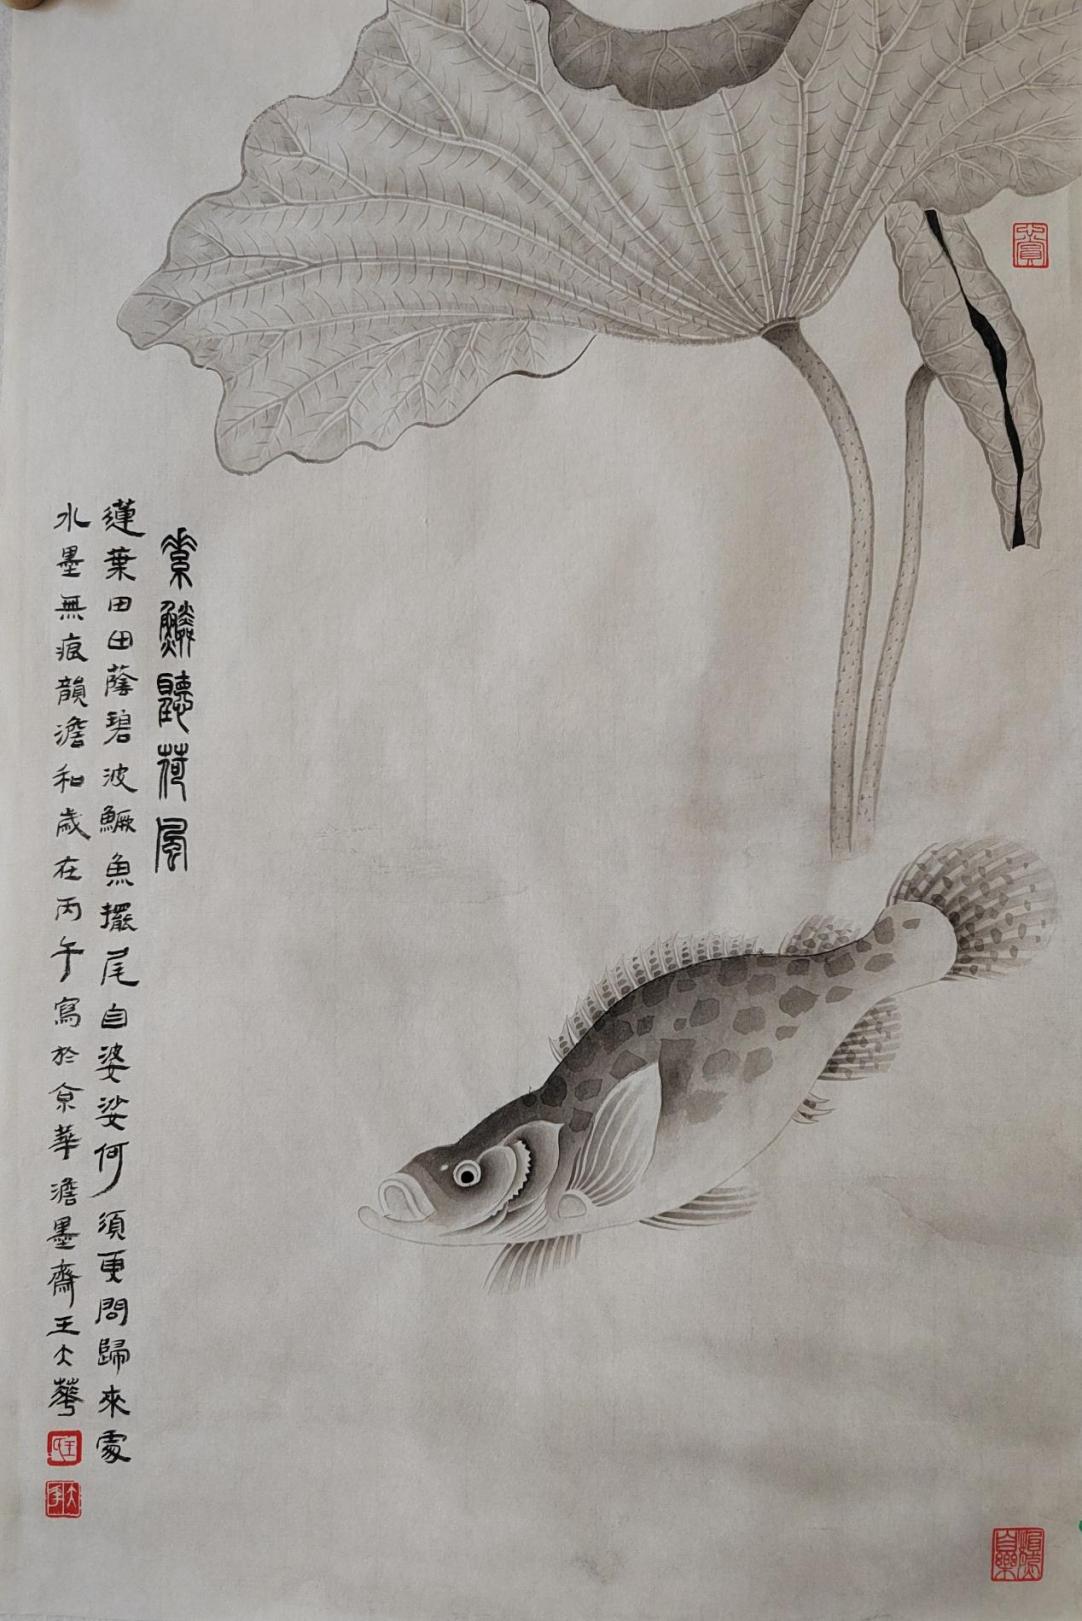 素鱗聽荷風
蓮葉田田蔭碧波鱖魚擺尾自婆娑何須更問歸來處
水墨無痕韻澹和歲在丙午寫於京華澹墨齋王大華